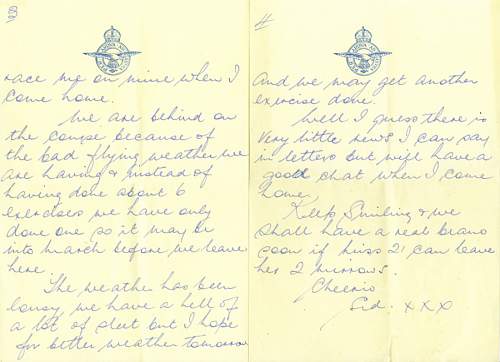 3
race me on mine when I
come home.
We are behind on
the course because of
the bad flying weather we
are having & instead of
having done about 6
exercises we have only
done one so it may be
into March before we leave
here.
The weather has been
lousy, we have a hell of
a lot of sleet but I hope
for better weather tomorrow
4
And we may get another
exercise done.
Well I guess there is
very little news I can say
in letters but will have a
good chat when I come
home.
Keep Smiling & we
shall have a real
soon if miss 2 can leave
her 2
Cheerio
Sid. xxx